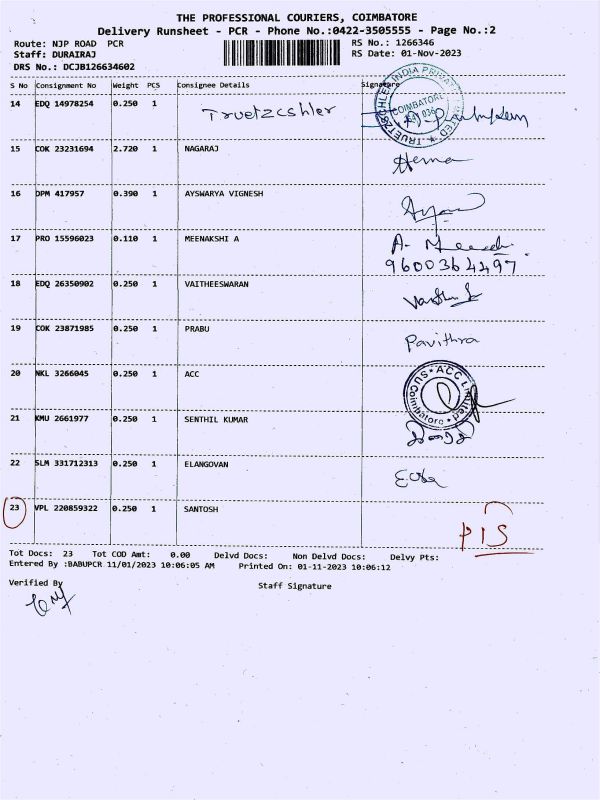 THE PROFESSIONAL COURIERS, COIMBATORE
Delivery Runsheet - PCR - Phone No.:0422-3505555 - Page No.:2
Route: NJP ROAD PCR RS No.: 1266346
Staff: DURAIRAJ RS Date: 01-Nov-2023
DRS No.: DCJB126634602
S No Consignment No Weight PCS Consignee Details Signature
14 EDQ 14978254 0.250 1
15 COK 23231694 2.720 1 NAGARAJ Hema
16 DPM 417957 0.390 1 AYSWARYA VIGNESH
17 PRO 15596023 0.110 1 MEENAKSHI A
9600364497
18 EDQ 26350902 0.250 1 VAITHEESWARAN
19 COK 23871985 0.250 1 PRABU Pavithra
20 NKL 3266045 0.250 1 ACC
ACC Limited Coimbatore
21 KMU 2661977 0.250 1 SENTHIL KUMAR
22 SLM 331712313 0.250 1 ELANGOVAN
23 VPL 220859322 0.250 1 SANTOSH PIS
Tot Docs: 23 Tot COD Amt: 0.00 Delvd Docs: Non Delvd Docs: Delvy Pts:
Entered By :BABUPCR 11/01/2023 10:06:05 AM Printed On: 01-11-2023 10:06:12
Verified By Staff Signature